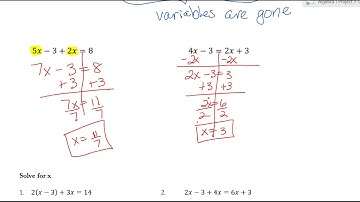 variables are gone
5x − 3 + 2x = 8
7x − 3 = 8
+3 +3
7x = 11
7 7
x = 11/7
4x − 3 = 2x + 3
−2x −2x
2x − 3 = 3
+3 +3
2x = 6
2 2
x = 3
Solve for x
1. 2(x − 3) + 3x = 14
2. 2x − 3 + 4x = 6x + 3